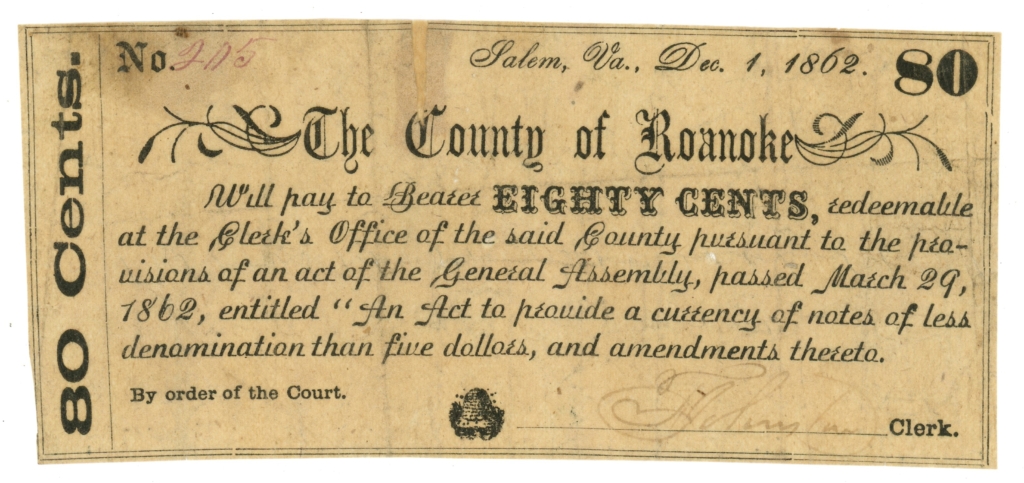 80 Cents.
No. 205
Salem, Va., Dec. 1, 1862.
80
The County of Roanoke
Will pay to Bearer EIGHTY CENTS, redeemable
at the Clerk's Office of the said County pursuant to the pro-
visions of an act of the General Assembly, passed March 29,
1862, entitled "An Act to provide a currency of notes of less
denomination than five dollors, and amendments thereto.
By order of the Court.
Clerk.